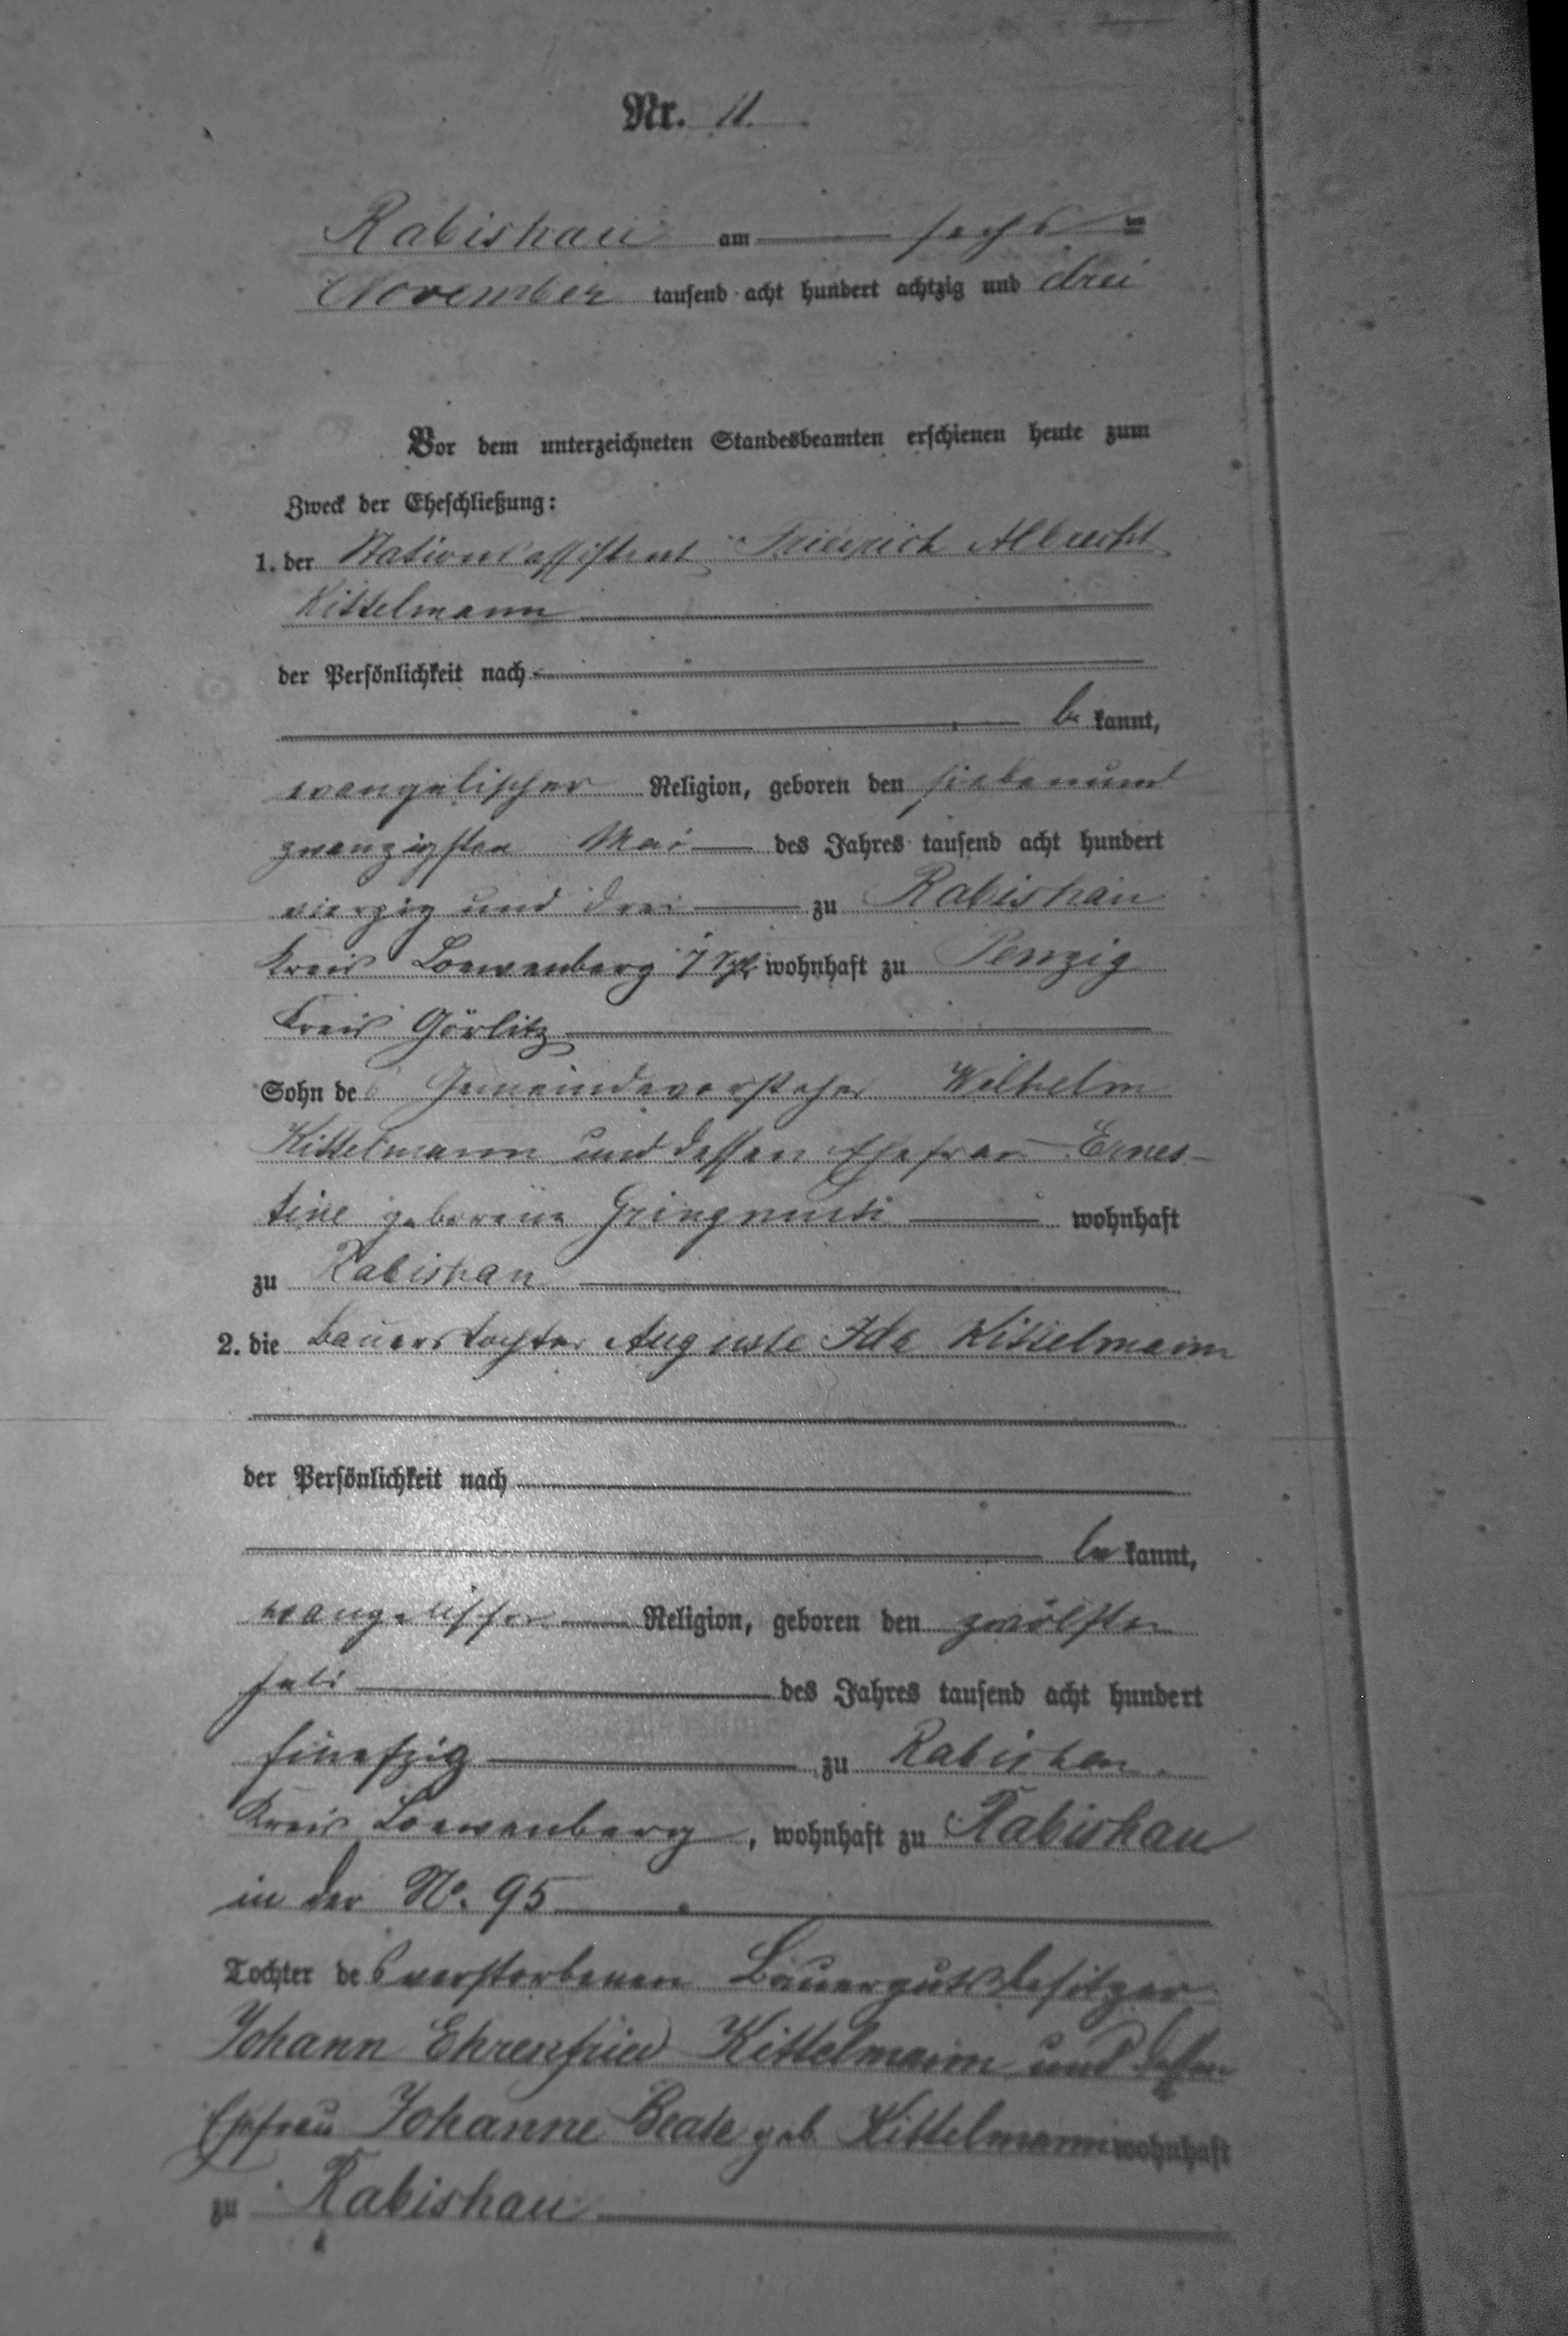 Nr. 11.
Rabishau am sechs ten
November tausend acht hundert achtzig und drei
Vor dem unterzeichneten Standesbeamten erschienen heute zum
Zweck der Eheschließung:
1. der Stationsassistent Friedrich Albrecht
Kittelmann
der Persönlichkeit nach
be kannt,
evangelischer Religion, geboren den siebenund
zwanzigsten Mai des Jahres tausend acht hundert
vierzig und drei zu Rabishau
Kreis Loewenberg wohnhaft zu Penzig
Kreis Görlitz
Sohn des Gemeindevorsteher Wilhelm
Kittelmann und dessen Ehefrau Ernes-
tine geborene wohnhaft
zu Rabishau
2. die Bauerstochter Auguste Ida Kittelmann
der Persönlichkeit nach
be kannt,
evangelischer Religion, geboren den zwölften
Juli des Jahres tausend acht hundert
fünfzig zu Rabishau
Kreis Loewenberg, wohnhaft zu Rabishau
in der No. 95
Tochter des verstorbenen Bauergutsbesitzer
Johann Ehrenfried Kittelmann und dessen
Ehefrau Johanne Beate geb. Kittelmann wohnhaft
zu Rabishau